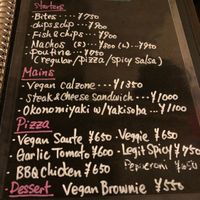 Starters
・Bites .... ¥750
・chips & dip ... ¥900
・Fish & chips ... ¥900
・Nachos (S) ¥800 (L) ...¥1900
・Poutine ... ¥750
(regular/pizza/spicy salsa)
Mains
・Vegan calzone ... ¥1350
・Steak & Cheese Sandwich ... ¥1000
・Okonomiyaki w/ Yakisoba ... ¥1100
Pizza
・Vegan Saute ¥650 ・Veggie ¥650
・Garlic Tomato ¥600 ・Legit Spicy ¥750
・BBQ Chicken ¥650 Pepperoni ¥650
Dessert Vegan Brownie ¥550